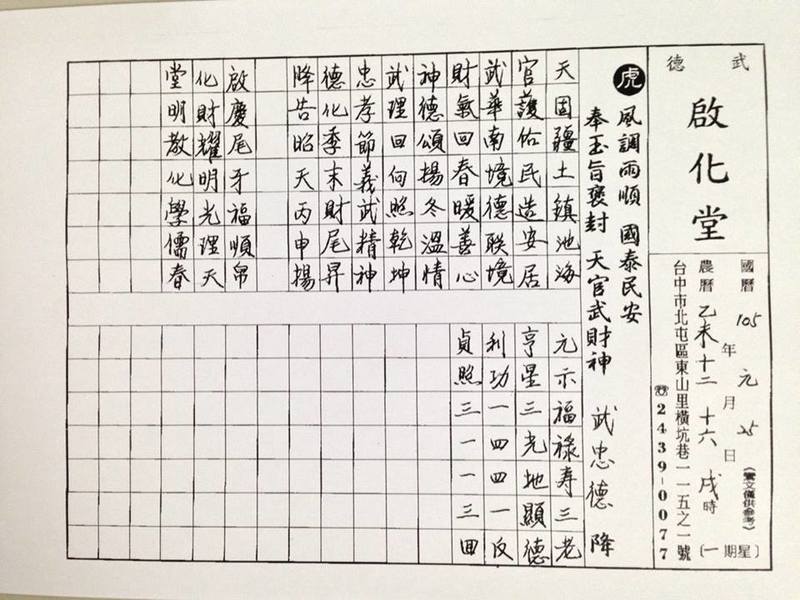 武德
啟化堂
國曆105年元月25日
農曆乙未十二十六戌時
(鸞文僅供參考)
〔星期一〕
台中市北屯區東山里橫坑巷一一五之一號
☎2439-0077
虎 風調雨順 國泰民安
奉玉旨褒封 天官武財神 武忠德 降
天固疆土鎮池海
官護佑民造安居
武華南境德联境
財氣回春暖善心
神德頌揚冬溫情
武理回向照乾坤
忠孝節義武精神
德化季末財尾昇
降告昭天丙申揚
啟慶尾牙福順帛
化財耀明光理天
堂明教化學儒春
元示福祿寿三老
亨星三光地顯德
利功一四四一反
貞照三一一三回